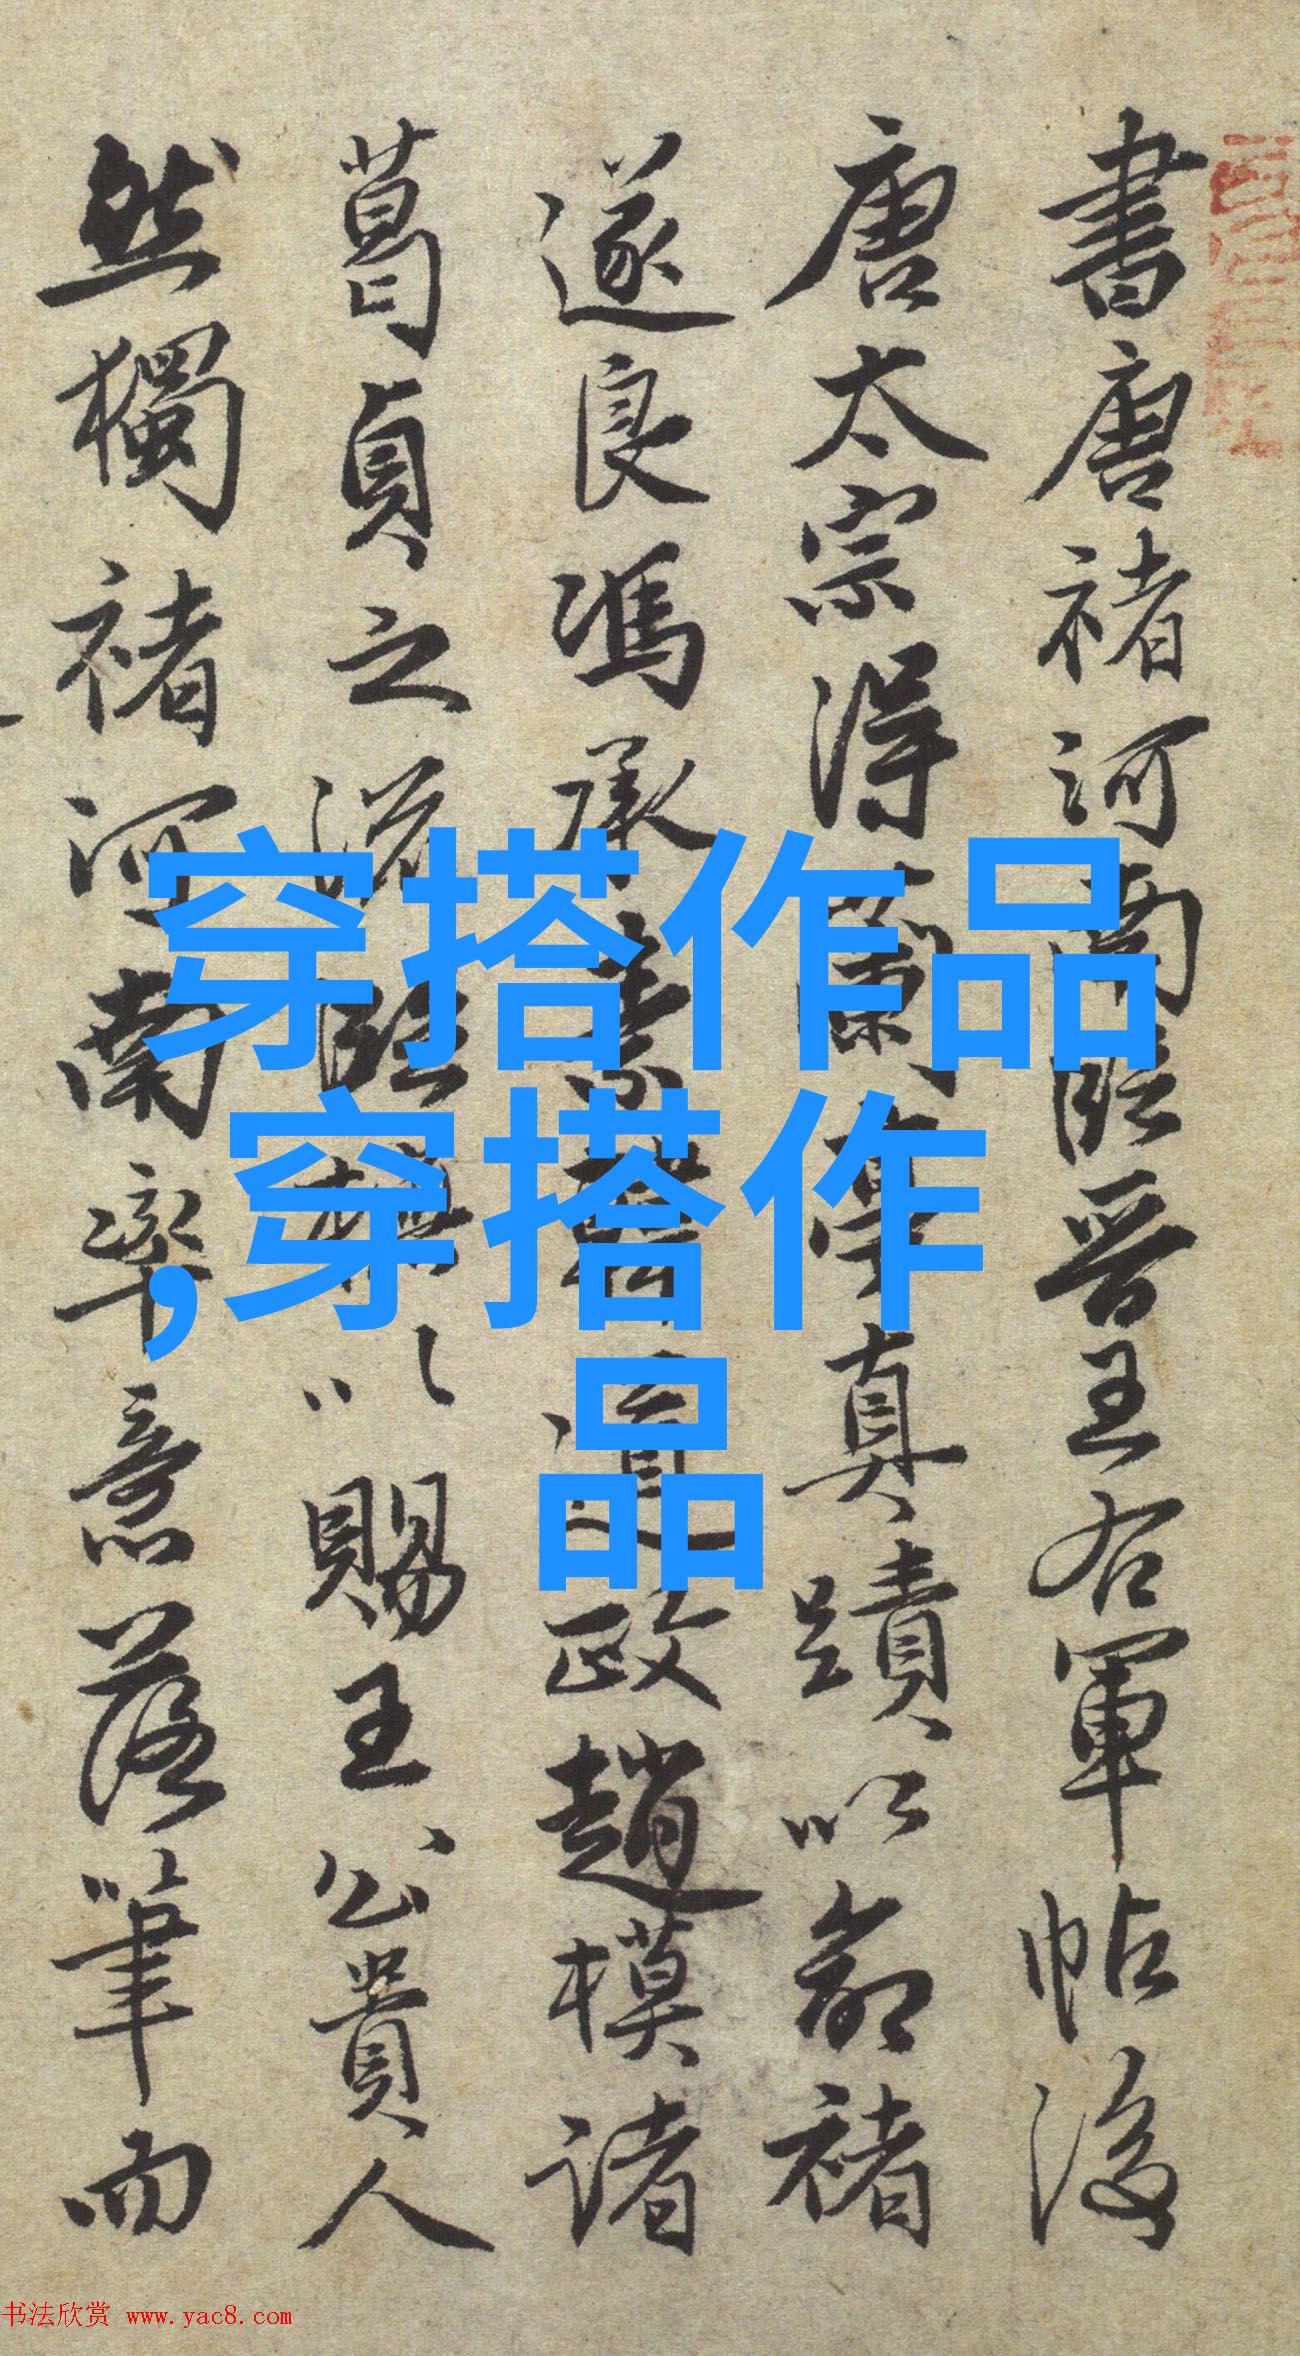 書唐褚河南臨晉王右軍帖後
唐太宗得蘭亭真蹟以命褚
遂良馮承素韓道政趙模諸
葛貞之流臨模以賜王公貴人
然獨褚河南率意落筆而
穿搭作品
,穿搭作
品
书法欣赏 www.yac8.com